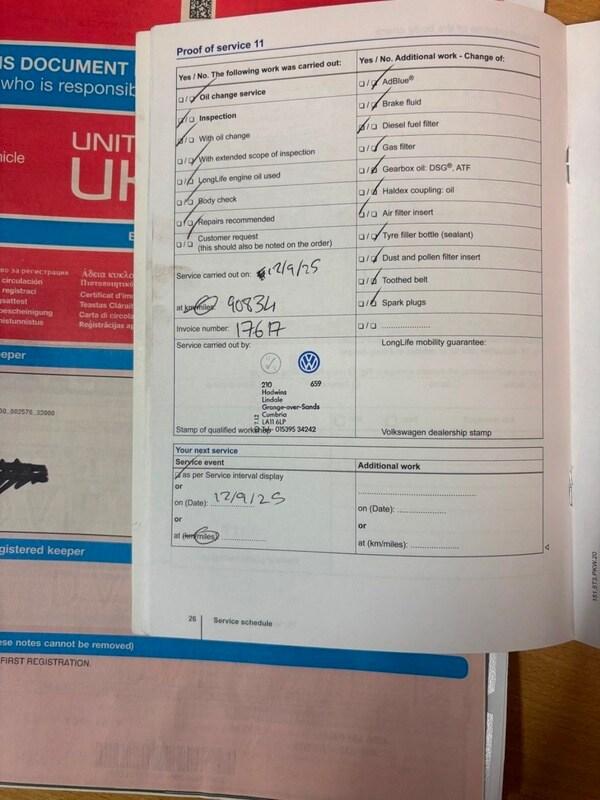 IS DOCUMENT
who is responsib
UNIT
UK
hicle
во за регистрация
Άδεια κυκλο
circulación
Πιστοποιητικό
registraci
Certificat d'im
gsattest
Teastas Clárait
bescheinigung
Carta di circola
nistunnistus
Reģistrācijas ap
eper
gistered keeper
ese notes cannot be removed)
FIRST REGISTRATION.
Proof of service 11
Yes / No. The following work was carried out:
Oil change service
Inspection
With oil change
With extended scope of inspection
LongLife engine oil used
Body check
Repairs recommended
Customer request
(this should also be noted on the order)
Service carried out on: 12/9/25
at km/miles: 90834
Invoice number: 17617
Service carried out by:
210 659
Hadwins
Lindale
Grange-over-Sands
Cumbria
LA11 6LP
Tel: 015395 34242
Stamp of qualified workshop
Yes / No. Additional work - Change of:
AdBlue®
Brake fluid
Diesel fuel filter
Gas filter
Gearbox oil: DSG®, ATF
Haldex coupling: oil
Air filter insert
Tyre filler bottle (sealant)
Dust and pollen filter insert
Toothed belt
Spark plugs
LongLife mobility guarantee:
Volkswagen dealership stamp
Your next service
Service event
as per Service interval display
or
on (Date): 12/9/25
or
at (km/miles):
Additional work
on (Date):
or
at (km/miles):
26 Service schedule